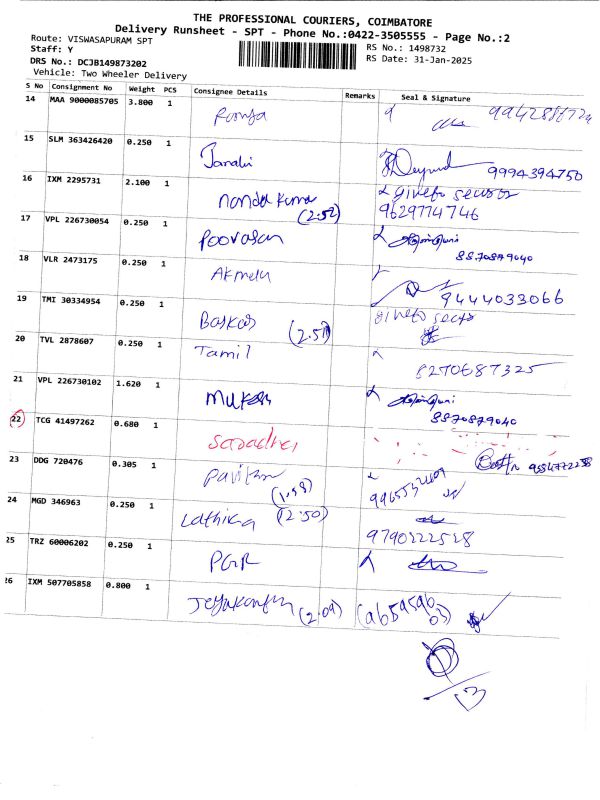 THE PROFESSIONAL COURIERS, COIMBATORE
Delivery Runsheet - SPT - Phone No.:0422-3505555 - Page No.:2
Route: VISWASAPURAM SPT
RS No.: 1498732
Staff: Y
RS Date: 31-Jan-2025
DRS No.: DCJB149873202
Vehicle: Two Wheeler Delivery
S No Consignment No Weight PCS Consignee Details Remarks Seal & Signature
14 MAA 9000085705 3.800 1
15 SLM 363426420 0.250 1 Janaki 9994394750
16 IXM 2295731 2.100 1 nanda kuma (2.52) 9629774746
17 VPL 226730054 0.250 1 Poovasan 8870879040
18 VLR 2473175 0.250 1 9444033066
19 TMI 30334954 0.250 1 Baskar
20 TVL 2878607 0.250 1 Tamil 8270687325
21 VPL 226730102 1.620 1 8870879040
22 TCG 41497262 0.680 1
23 DDG 720476 0.305 1 (1.58)
24 MGD 346963 0.250 1 Lathika (2.50) 9790222528
25 TRZ 60006202 0.250 1 PGR
26 IXM 507705858 0.800 1 (2.09)